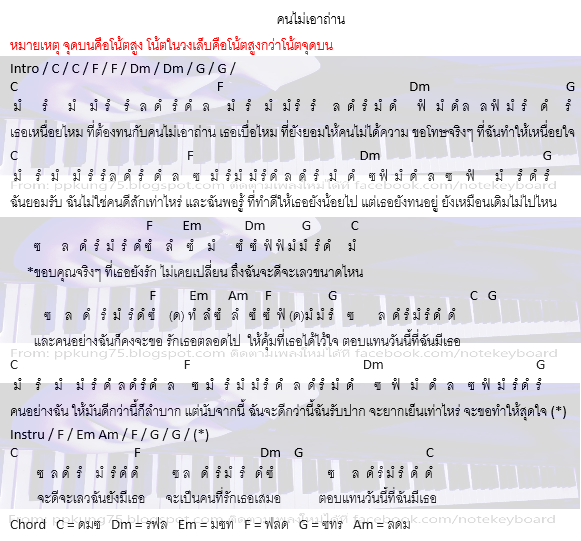 คนไม่เอาถ่าน
หมายเหตุ จุดบนคือโน้ตสูง โน้ตในวงเล็บคือโน้ตสูงกว่าโน้ตจุดบน
Intro / C / C / F / F / Dm / Dm / G / G /
C F Dm G
มํ รํ มํ มํ รํ รํ ล ดํ รํ ดํ ล มํ รํ มํ มํ รํ รํ ล ดํ รํ มํ ดํ ฟํ มํ ดํ ล ล ฟํ มํ รํ ดํ รํ
เธอเหนื่อยไหม ที่ต้องทนกับคนไม่เอาถ่าน เธอเบื่อไหม ที่ยังยอมให้คนไม่ได้ความ ขอโทษจริงๆ ที่ฉันทำให้เหนื่อยใจ
C F Dm G
มํ รํ มํ มํ รํ รํ ล ดํ รํ ดํ ล ซ มํ รํ มํ มํ รํ ดํ ล ดํ รํ มํ ดํ ซ ฟํ มํ ดํ ล ซ ฟํ มํ รํ ดํ รํ
From: ppkung75.blogspot.com ติดตามเพลงใหม่ได้ที่ facebook.com/notekeyboard
ฉันยอมรับ ฉันไม่ใช่คนดีสักเท่าไหร่ และฉันพอรู้ ที่ทำดีให้เธอยังน้อยไป แต่เธอยังทนอยู่ ยังเหมือนเดิมไม่ไปไหน
F Em Dm G C
ซ ล ดํ รํ มํ รํ ดํ ซํ ลํ ซํ มํ ซํ ซํ ฟํ ฟํ มํ มํ รํ ดํ มํ
*ขอบคุณจริงๆ ที่เธอยังรัก ไม่เคยเปลี่ยน ถึงฉันจะดีจะเลวขนาดไหน
F Em Am F G C G
ซ ล ดํ รํ มํ รํ ดํ ซํ (ด) ทํ ลํ ซํ ลํ ซํ ซํ ฟํ (ด) มํ มํ รํ ซ ล ดํ รํ มํ รํ ดํ ดํ
และคนอย่างฉันก็คงจะขอ รักเธอตลอดไป ให้คุ้มที่เธอได้ไว้ใจ ตอบแทนวันนี้ที่ฉันมีเธอ
From: ppkung75.blogspot.com ติดตามเพลงใหม่ได้ที่ facebook.com/notekeyboard
C F Dm G
มํ รํ มํ มํ รํ ดํ ล ดํ รํ ดํ ล ซ มํ รํ มํ มํ รํ ดํ ล ดํ รํ มํ ดํ ซ ฟํ มํ ดํ ล ซ ฟํ มํ รํ ดํ รํ
คนอย่างฉัน ให้มันดีกว่านี้ก็ลำบาก แต่นับจากนี้ ฉันจะดีกว่านี้ฉันรับปาก จะยากเย็นเท่าไหร่ จะขอทำให้สุดใจ (*)
Instru / F / Em Am / F / G / G / (*)
C F Dm G C
ซ ล ดํ รํ มํ รํ ดํ ดํ ซ ล ดํ รํ มํ รํ ดํ ซํ ซ ล ดํ รํ มํ รํ ดํ ดํ
จะดีจะเลวฉันยังมีเธอ จะเป็นคนที่รักเธอเสมอ ตอบแทนวันนี้ที่ฉันมีเธอ
From: ppkung75.blogspot.com ติดตามเพลงใหม่ได้ที่ facebook.com/notekeyboard
Chord C = ดมซ Dm = รฟล Em = มซท F = ฟลด G = ซทร Am = ลดม